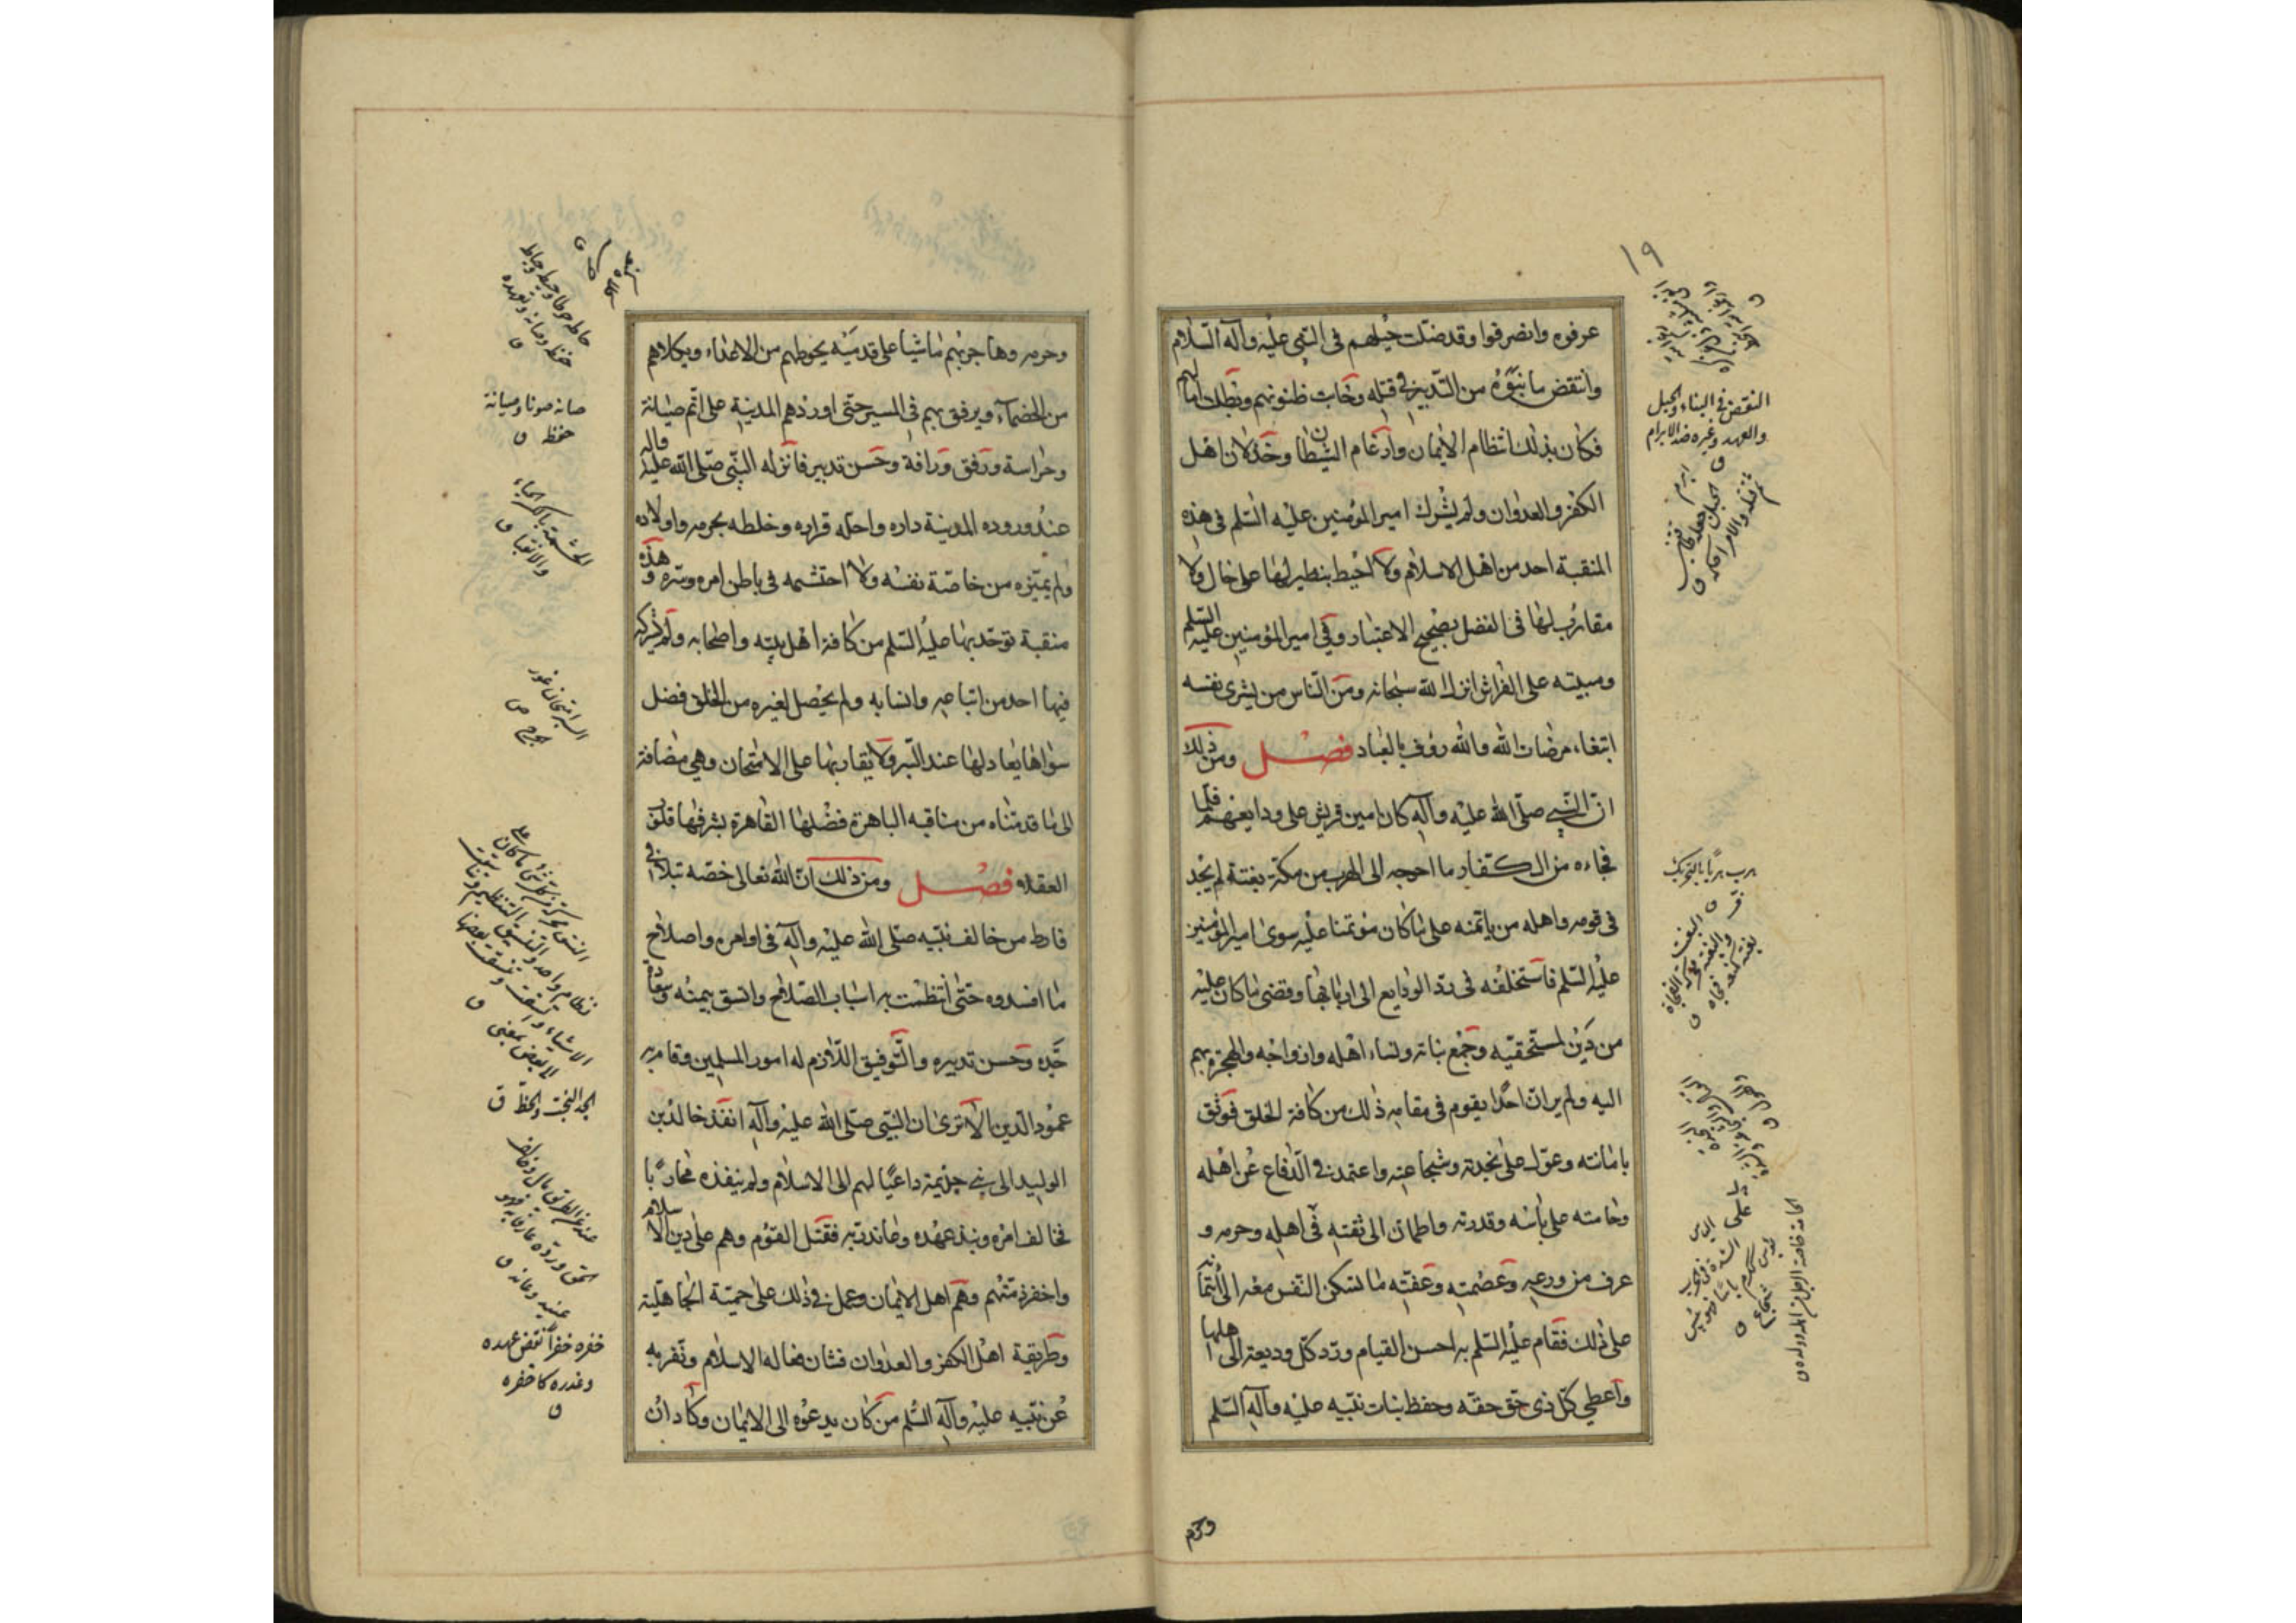 ١٩
عرفوه وانصرفوا وقد ضلت حيلهم فى النبى عليه وآله السلام
وانتقض ما بنوه من التدبير فى قتله وخابت ظنونهم وبطلت امالهم
فكان بذلك انتظام الايمان وارغام الشيطان وخذلان اهل
الكفر والعدوان ولم يشرك امير المؤمنين عليه السلم فى هذه
المنقبة احد من اهل الاسلام ولا احيط بنظير لها على حال ولا
مقارب لها فى الفضل بصحيح الاعتبار وفى امير المؤمنين عليه السلم
ومبيته على الفراش انزل الله سبحانه ومن الناس من يشرى نفسه
ابتغاء مرضات الله والله رؤف بالعباد فصل ومن ذلك
ان النبى صلى الله عليه وآله كان امين قريش على ودايعهم فلما
فجاءه من الكفار ما احوجه الى الهرب من مكة بغتة لم يجد
فى قومه واهله من ياتمنه على ما كان مؤتمنا عليه سوى امير المؤمنين
عليه السلم فاستخلفه فى رد الودايع الى اربابها وقضى ما كان عليه
من دين لمستحقيه وجمع بناته ونساء اهله وازواجه والهجرة بهم
اليه ولم ير ان احدا يقوم فى مقامه ذلك من كافة الخلق فوثق
بامانته وعول على نجدته وشجاعته واعتمد فى الدفاع عن اهله
وخامته على باسه وقدرته واطمان الى ثقته فى اهله وحرمه و
عرف من ورعه وعصمته وعفته ما تسكن النفس معه الى ائتمانه
على ذلك فقام عليه السلم به احسن القيام ورد كل وديعة الى اهلها
واعطى كل ذى حق حقه وحفظ بنات نبيه عليه وآله السلم
وحرم
النقض فى البناء والحبل
والعهد وغيره ضد الابرام
هرب هربا بالتحريك
فر
وحرمه وهاجر بهم ماشيا على قدميه يحوطهم من الاعداء ويكلاهم
من الخصماء ويرفق بهم فى المسير حتى اوردهم المدينة على اتم صيانة
وحراسة ورفق ورافة وحسن تدبير فانزله النبى صلى الله عليه وآله
عند وروده المدينة داره واحله قراره وخلطه بحرمه واولاده
ولم يميزه من خاصة نفسه ولا احتشمه فى باطن امره وسره وهذه
منقبة توحد بها عليه السلم من كافة اهل بيته واصحابه ولم يشركه
فيها احد من اتباعه وانسابه ولم يحصل لغيره من الخلق فضل
سواها يعادلها عند السبر ولا يقاربها على الامتحان وهى مضافة
الى ما قدمناه من مناقبه الباهرة فضلها القاهرة بشرفها قلوب
العقلاء فصل ومن ذلك ان الله تعالى خصه بتلافى
فارط من خالف نبيه صلى الله عليه وآله فى اوامره واصلاح
ما افسدوه حتى انتظمت به اسباب الصلاح واتسق بيمنه وسعادة
جده وحسن تدبيره والتوفيق اللازم له امور المسلمين وقام به
عمود الدين الا ترى ان النبى صلى الله عليه وآله انفذ خالد بن
الوليد الى بنى جذيمة داعيا لهم الى الاسلام ولم ينفذه محاربا
فخالف امره ونبذ عهده وعاند دينه فقتل القوم وهم على دين الاسلام
واخفر ذمتهم وهم اهل الايمان وعمل فى ذلك على حمية الجاهلية
وطريقة اهل الكفر والعدوان فشان فعاله الاسلام ونفر به
عن نبيه عليه وآله السلم من كان يدعوه الى الايمان وكاد ان
صانه صونا وصيانة
حفظه ق
الجد البخت والحظ ق
خفره خفرا نقض عهده
وغدره كاخفره
ق